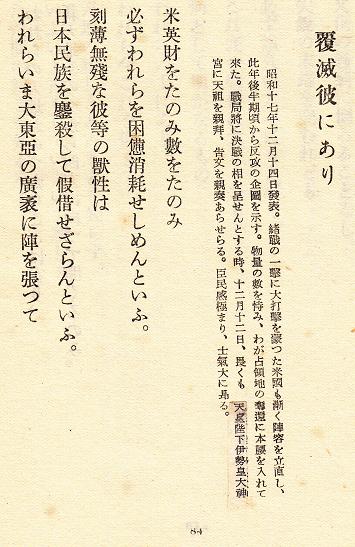 覆滅彼にあり
昭和十七年十二月十四日發表。緖戰の一擊に大打擊を蒙つた米國も漸く陣容を立直し、
此年後半期頃から反攻の企圖を示す。物量の數を恃み、わが占領地の奪還に本腰を入れて
來た。戰局將に決戰の相を呈せんとする時、十二月十二日、畏くも 天皇陛下伊勢皇大神
宮に天祖を親拜、告文を親奏あらせらる。臣民感極まり、士氣大に昂る。
米英財をたのみ數をたのみ
必ずわれらを困憊消耗せしめんといふ。
刻薄無殘な彼等の獸性は
日本民族を鏖殺して假借せざらんといふ。
われらいま大東亞の廣袤に陣を張つて
84